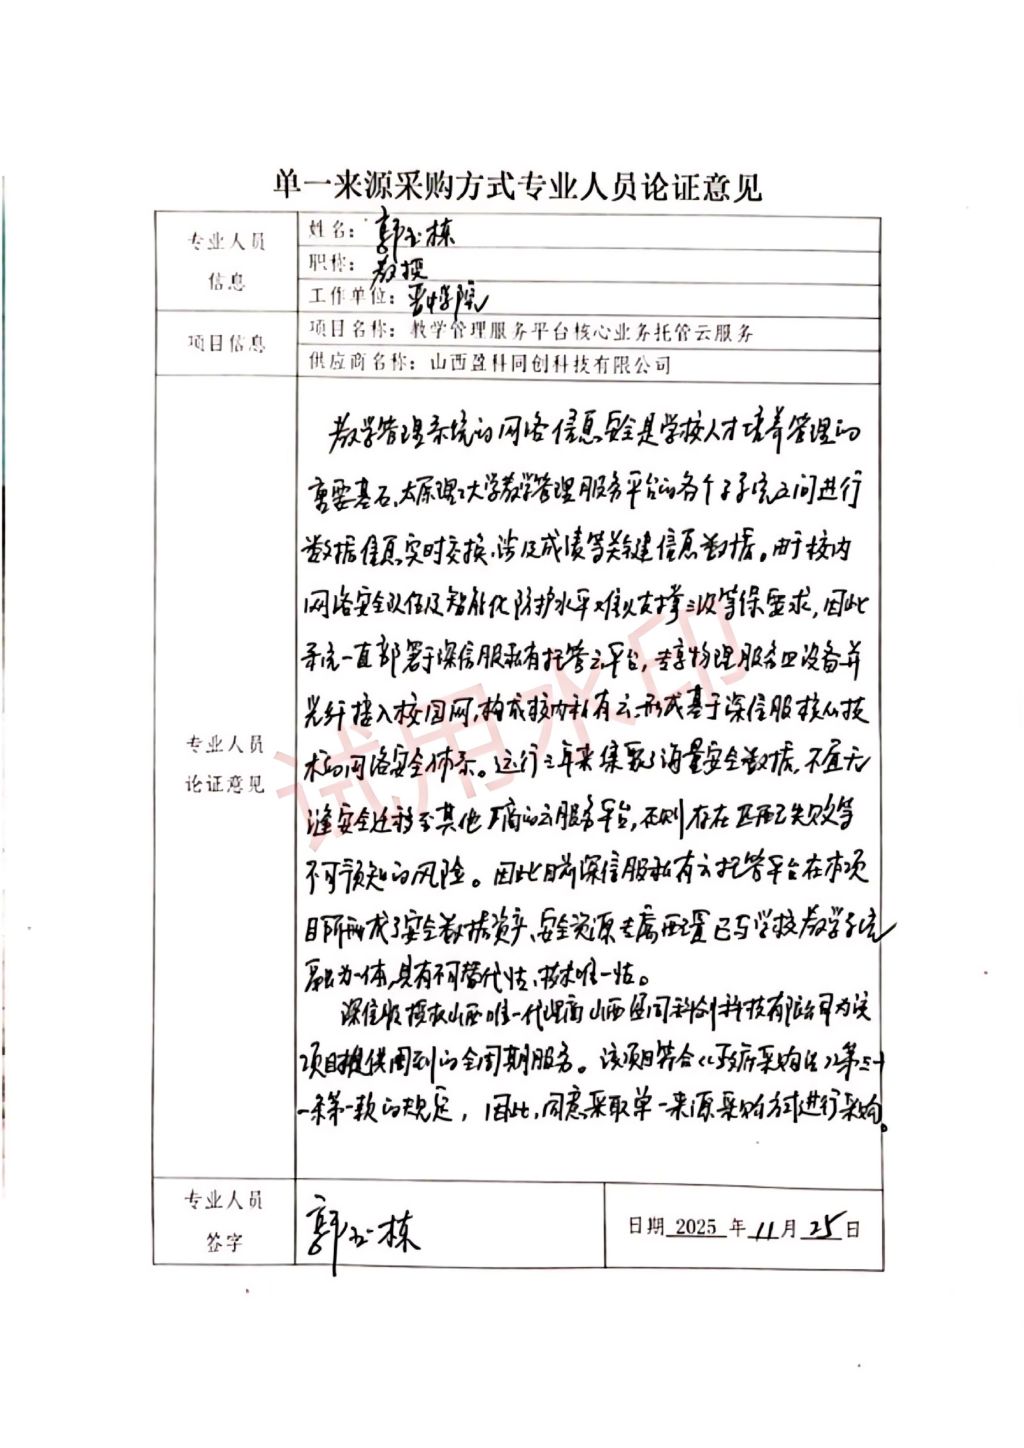 单一来源采购方式专业人员论证意见
专业人员
信息
姓名：郭玉栋
职称：教授
工作单位：晋中学院
项目信息
项目名称：教学管理服务平台核心业务托管云服务
供应商名称：山西盈科同创科技有限公司
专业人员
论证意见
教学管理系统的网络信息安全是学校人才培养管理的
重要基石，太原理工大学教学管理服务平台的各个子系统之间进行
数据信息实时交换，涉及成绩等关键信息数据。由于校内
网络安全队伍及智能化防护水平难以支撑三级等保要求，因此
系统一直部署于深信服私有托管云平台，专享物理服务四设备并
光纤接入校园网，构成校内私有云，形成基于深信服核心技
术的网络安全体系。运行三年来集聚了海量安全数据，不宜无
缝安全迁移至其他厂商的云服务平台，否则存在匹配失败等
不可预知的风险。因此目前深信服私有云托管平台在本项
目所形成了安全数据资产、安全资源专属配置已与学校教学系统
融为一体，具有不可替代性、技术唯一性。
深信服授权山西唯一代理商山西盈同科创科技有限公司为该
项目提供周到的全周期服务。该项目符合《政府采购法》第三十
一条第一款的规定，因此，同意采取单一来源采购方式进行采购。
试用水印
专业人员
签字
郭玉栋
日期 2025 年 11 月 25 日